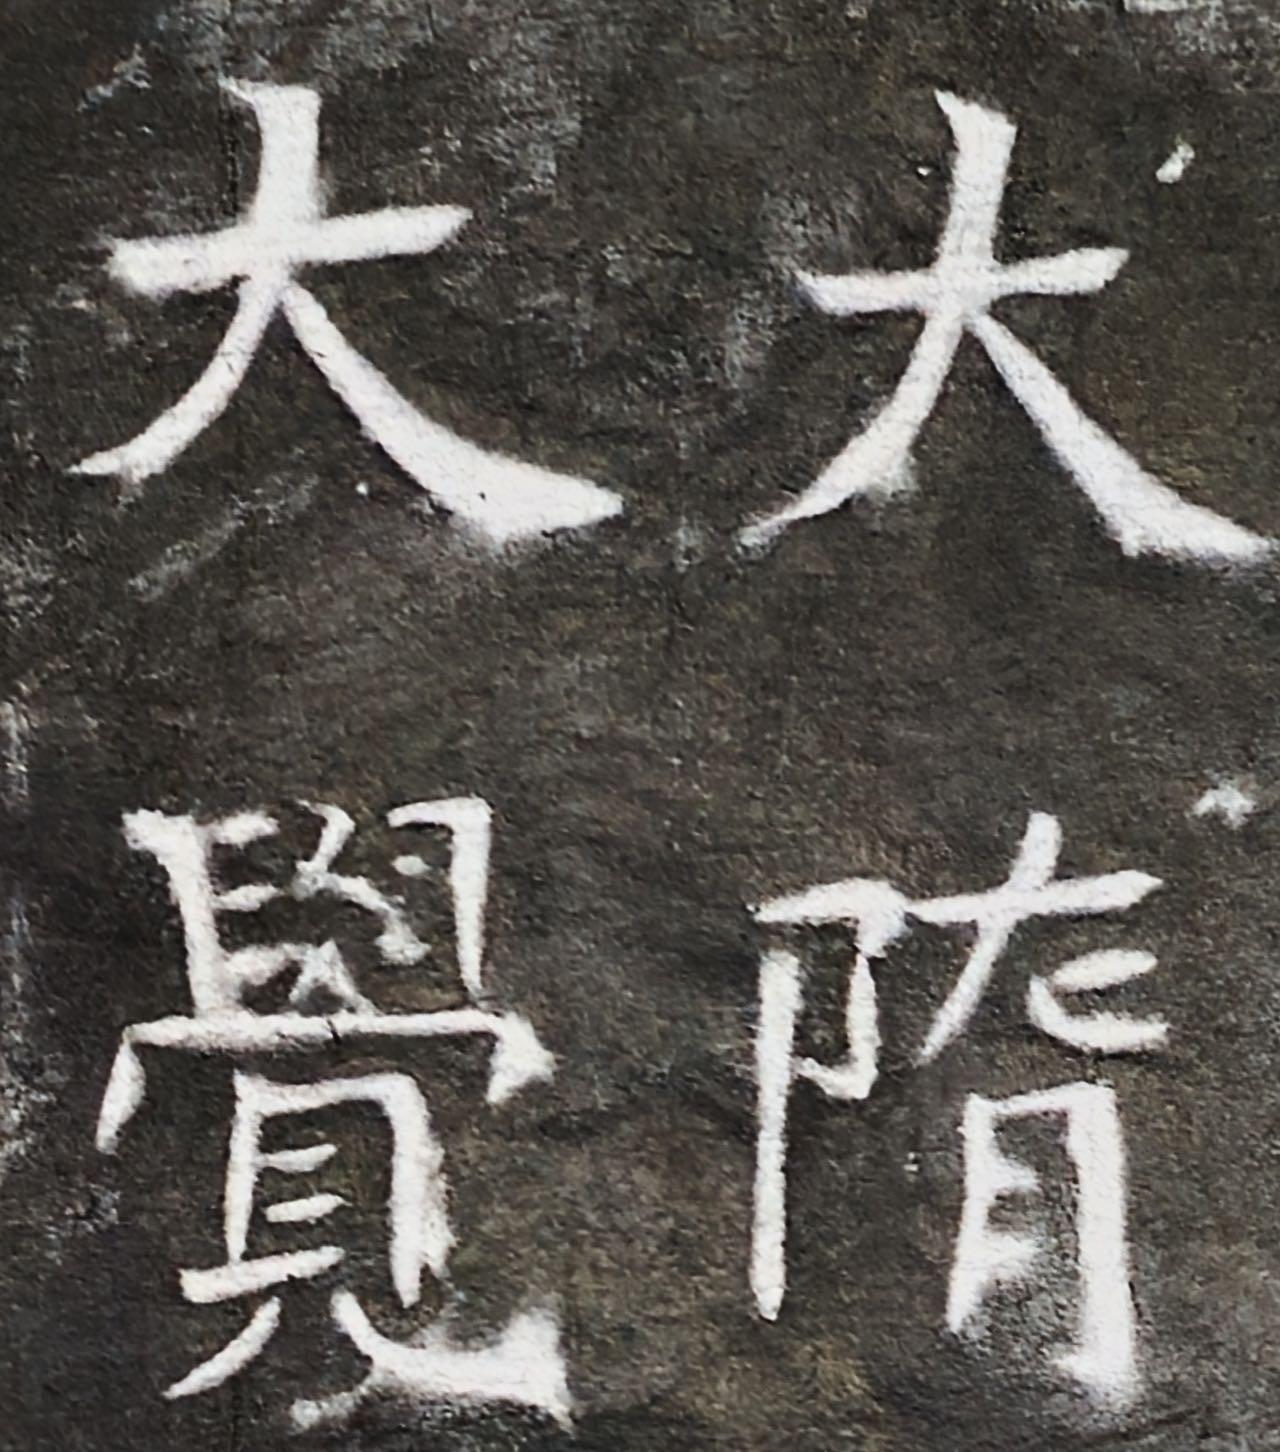 大隋
大覺